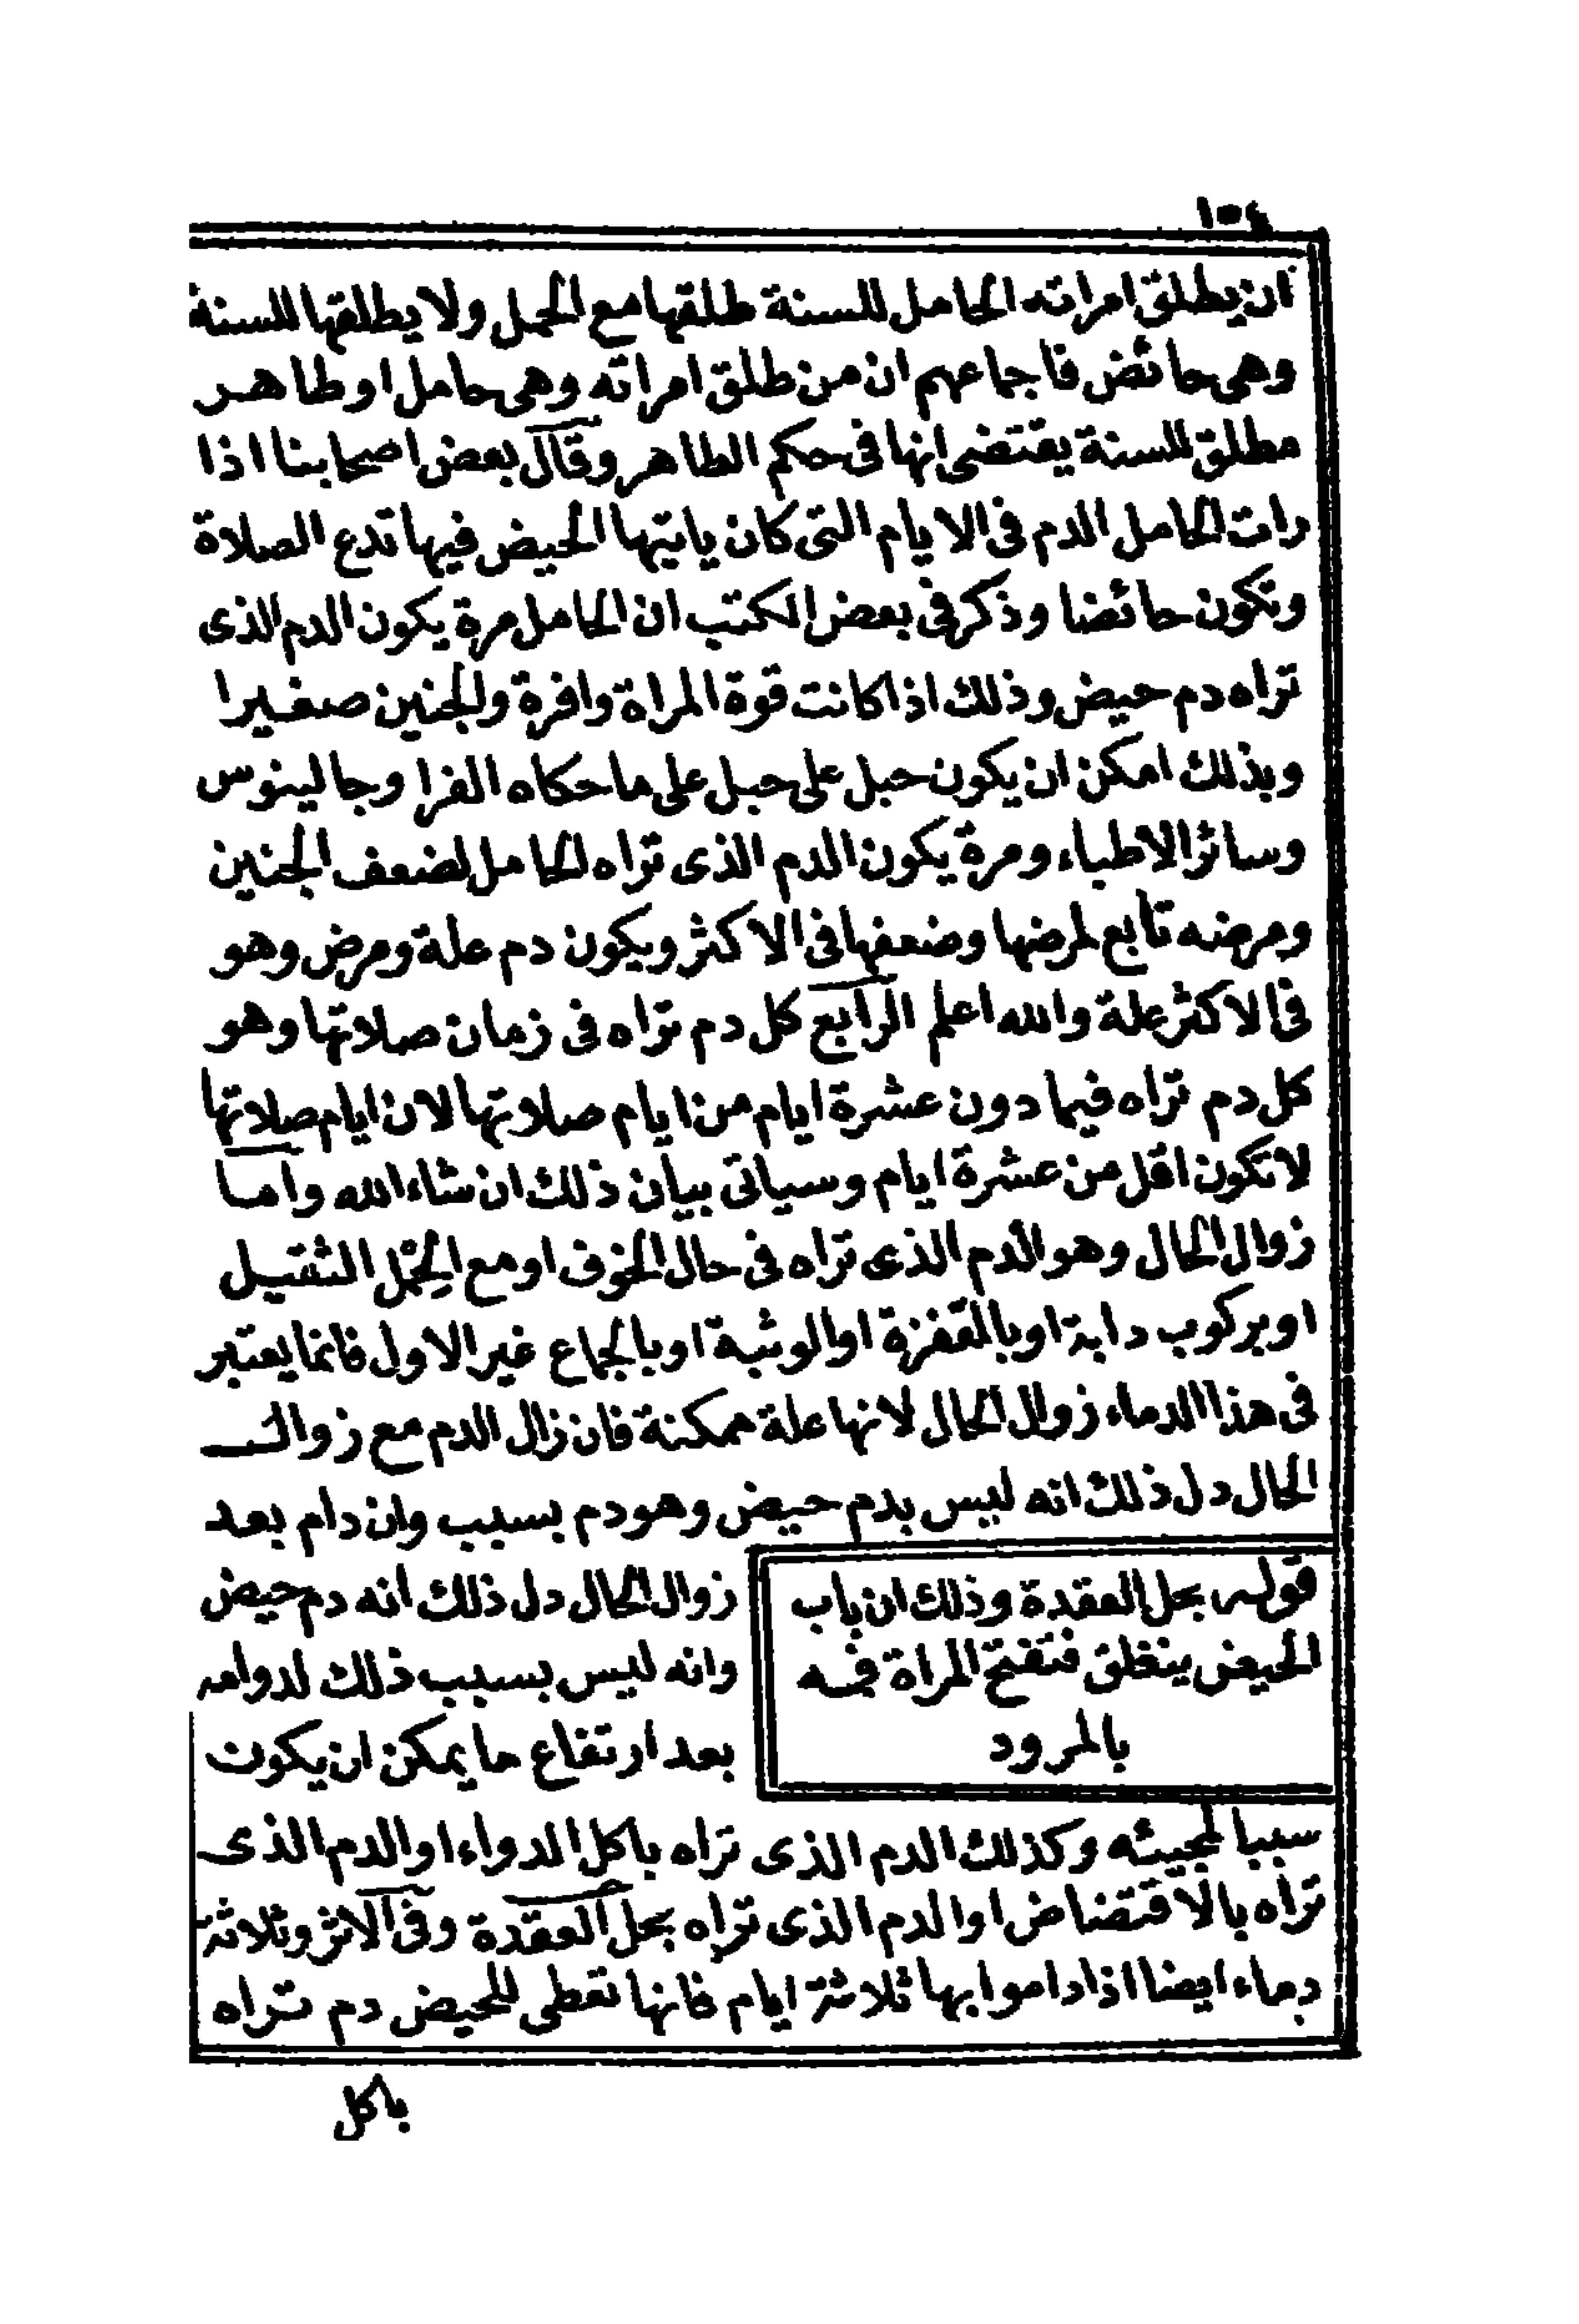 ١٥٤
ان يطلق امراته الحامل للسنة طلقها مع الحمل ولا يطلقها للسنة
وهى حائض فاجماعهم ان من طلق امراته وهى حامل او طاهر
مطلق للسنة يقتضى انها فى حكم الطاهر وقال بعض اصحابنا اذا
رات الحامل الدم فى الايام التى كان ياتيها الحيض فيها تدع الصلاة
وتكون حائضا وذكر فى بعض الكتب ان الحامل مرة يكون الدم الذى
تراه دم حيض وذلك اذا كانت قوة المراة وافرة والجنين صغيرا
وبذلك امكن ان يكون حبل على حبل على ما حكاه الفرا وجالينوس
وسائر الاطباء ومرة يكون الدم الذى تراه الحامل لضعف الجنين
ومرضه تابع لمرضها وضعفها فى الاكثر ويكون دم علة ومرض وهو
فى الاكثر علة والله اعلم الرابع كل دم تراه فى زمان صلاتها وهو
كل دم تراه فيما دون عشرة ايام من ايام صلاتها لان ايام صلاتها
لا تكون اقل من عشرة ايام وسياتى بيان ذلك ان شاء الله واما
زوال الحال وهو الدم الذى تراه فى حال الخوف او مع الحِمْل الثقيل
او بركوب دابة او بالقفزة او الوثبة او بالجماع غير الاول فانما يعتبر
فى هذا الدماء زوال الحال لانها علة ممكنة فان زال الدم مع زوال
الحال دل ذلك انه ليس بدم حيض وهو دم بسبب وان دام بعد
زوال الحال دل ذلك انه دم حيض
وانه ليس بسبب ذلك لدوامه
بعد ارتفاع ما يمكن ان يكون
قوله بحل العقدة وذلك ان باب
الحيض ينغلق فتفتح المراة فيه
بالمرود
سببا لمجيئه وكذلك الدم الذى تراه باكل الدواء او الدم الذى
تراه بالاقتضاض او الدم الذى تراه بحل العقدة وفى الاثر وثلاثة
دماء ايضا اذا داموا بها ثلاثة ايام فانها تعطى للحيض دم تراه
باكل